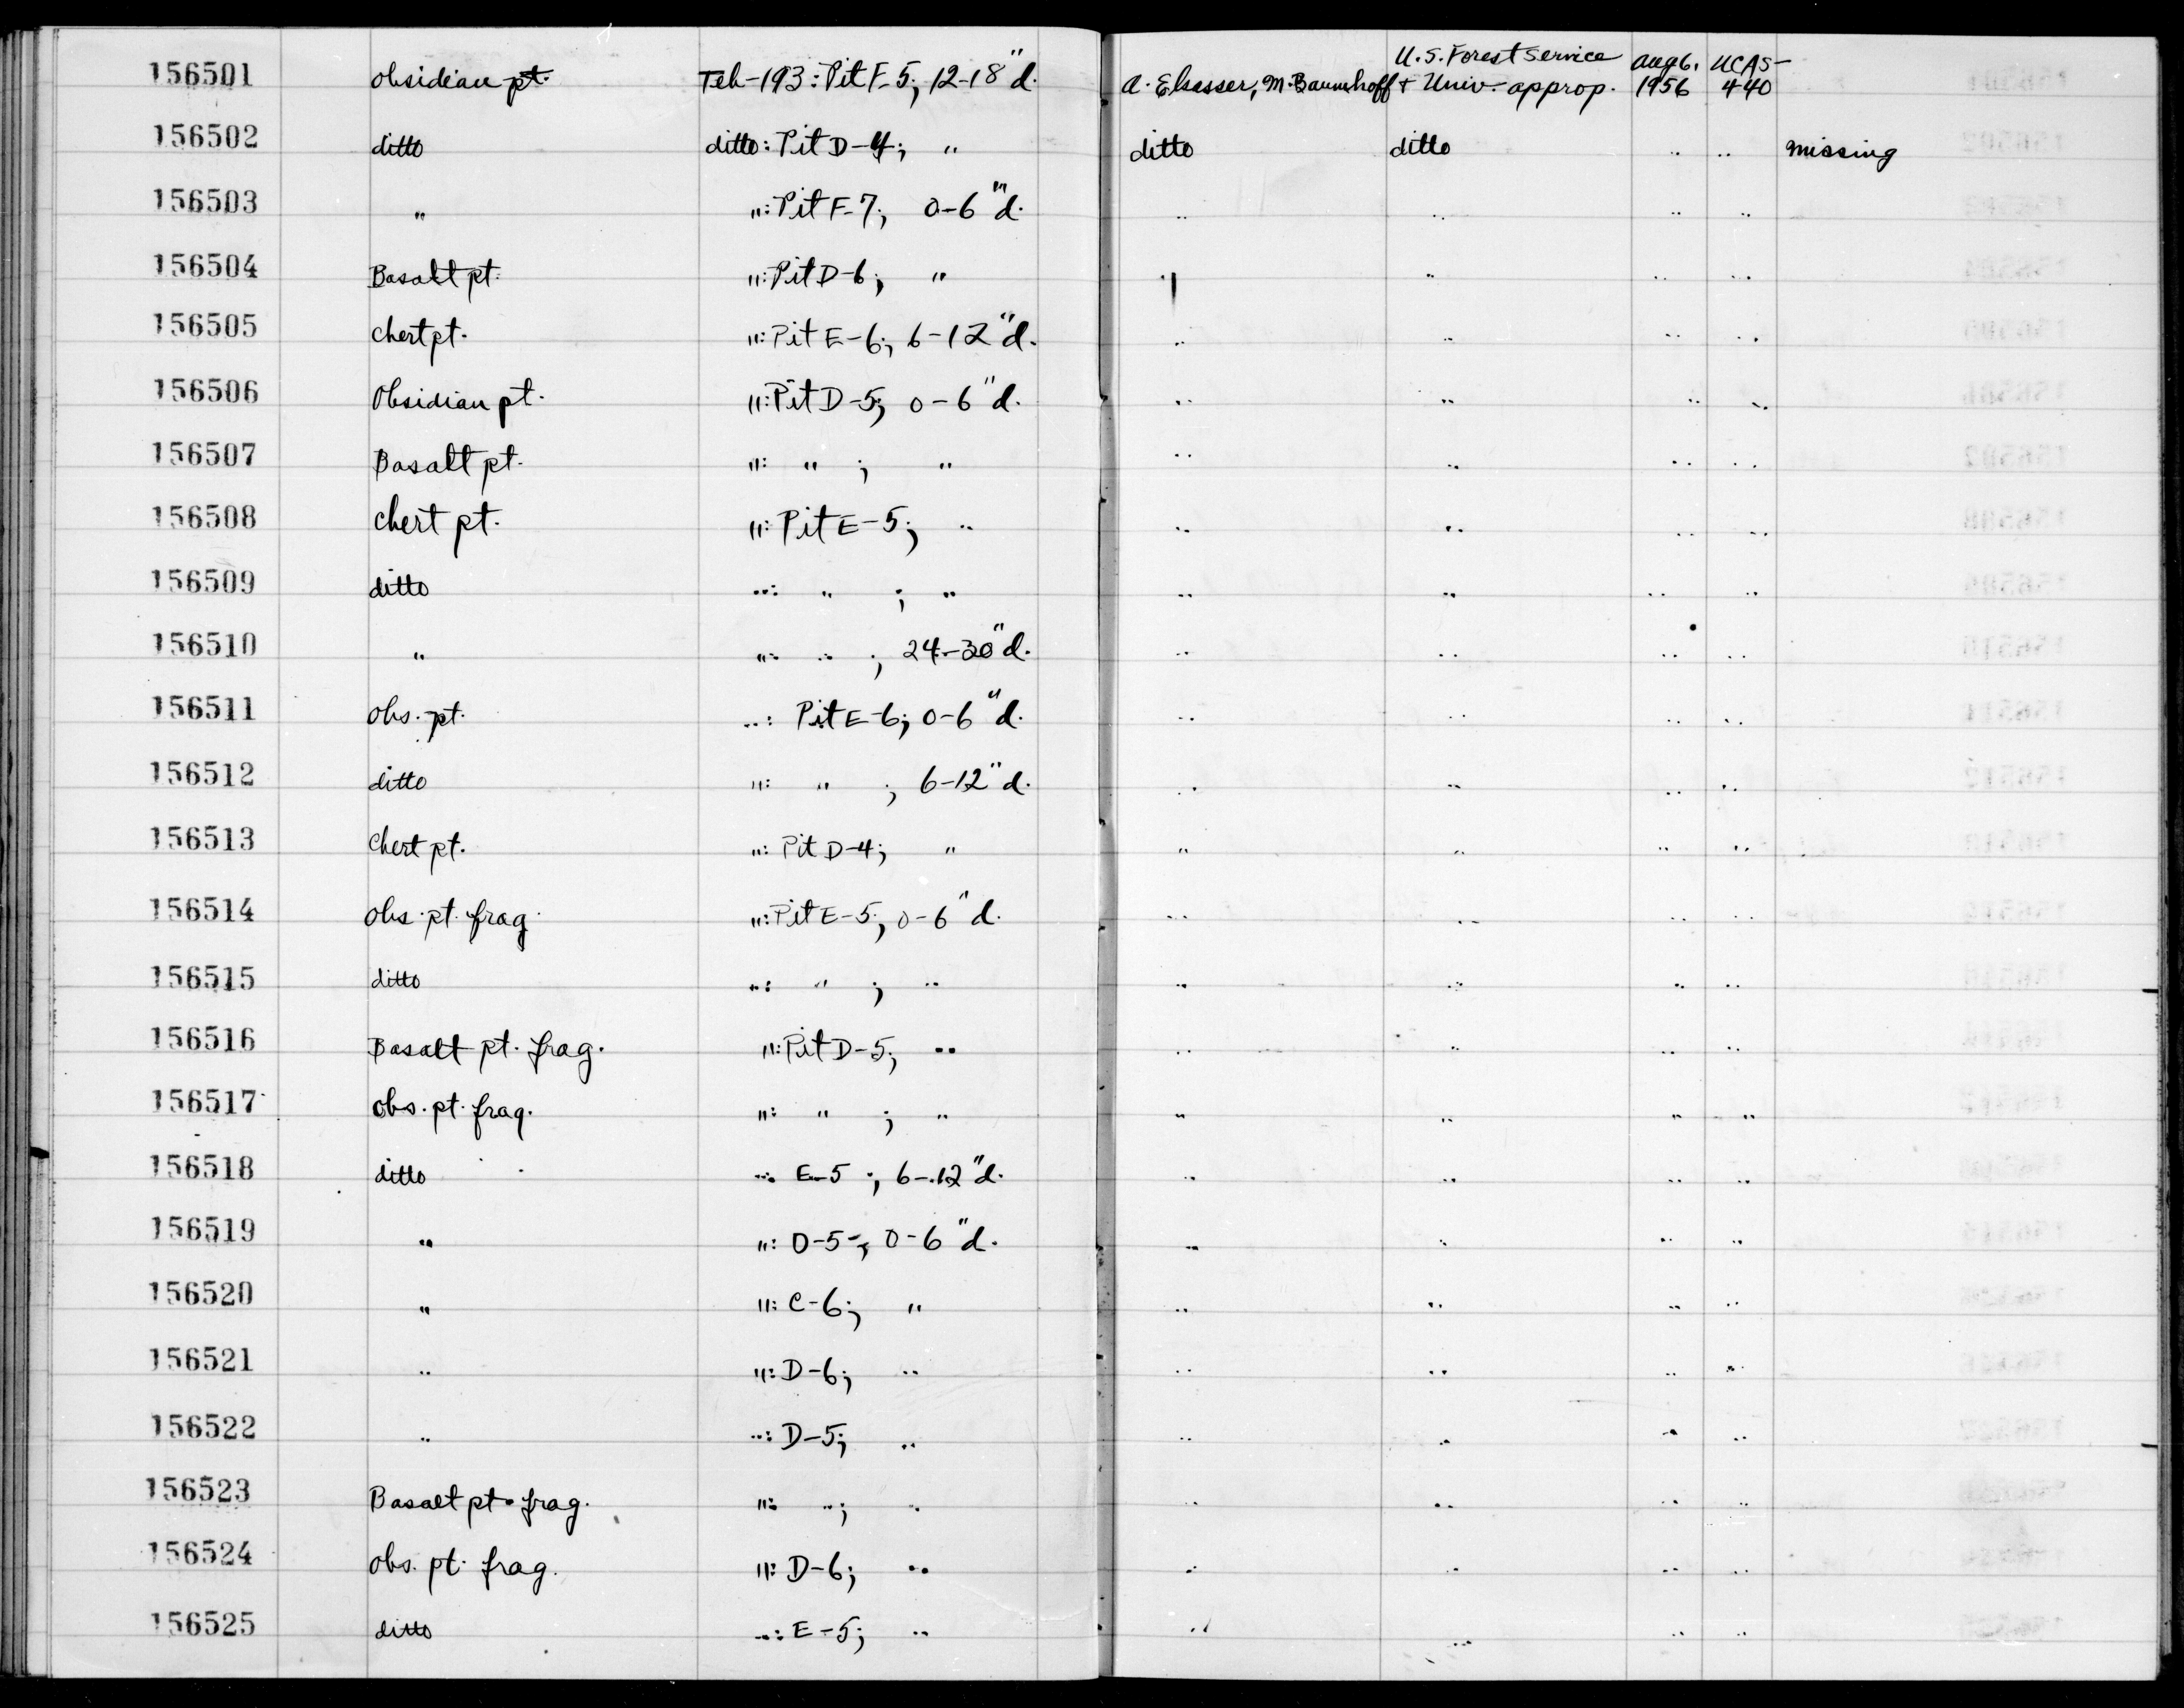 156501 obsidian pt. Teh-193: Pit F-5; 12-18"d. A. Elsasser, M. Baumhoff U.S. Forest Service + Univ. approp. Aug 6, 1956 UCAS-440
156502 ditto ditto: Pit D-4; " ditto ditto " " missing
156503 " ": Pit F-7; 0-6"d. " " " "
156504 Basalt pt. ": Pit D-6; " " " " "
156505 Chert pt. ": Pit E-6; 6-12"d. " " " "
156506 Obsidian pt. ": Pit D-5; 0-6"d. " " " "
156507 Basalt pt. ": " ; " " " " "
156508 Chert pt. ": Pit E-5; " " " " "
156509 ditto ": " ; " " " " "
156510 " ": " ; 24-30"d. " " " "
156511 obs. pt. ": Pit E-6; 0-6"d. " " " "
156512 ditto ": " ; 6-12"d. " " " "
156513 Chert pt. ": Pit D-4; " " " " "
156514 obs. pt. frag. ": Pit E-5; 0-6"d. " " " "
156515 ditto ": " ; " " " " "
156516 Basalt pt. frag. ": Pit D-5; " " " " "
156517 obs. pt. frag. ": " ; " " " " "
156518 ditto ": E-5 ; 6-12"d. " " " "
156519 " ": D-5; 0-6"d. " " " "
156520 " ": C-6; " " " " "
156521 " ": D-6; " " " " "
156522 " ": D-5; " " " " "
156523 Basalt pt. frag. ": "; " " " " "
156524 obs. pt. frag. ": D-6; " " " " "
156525 ditto ": E-5; " " " " "